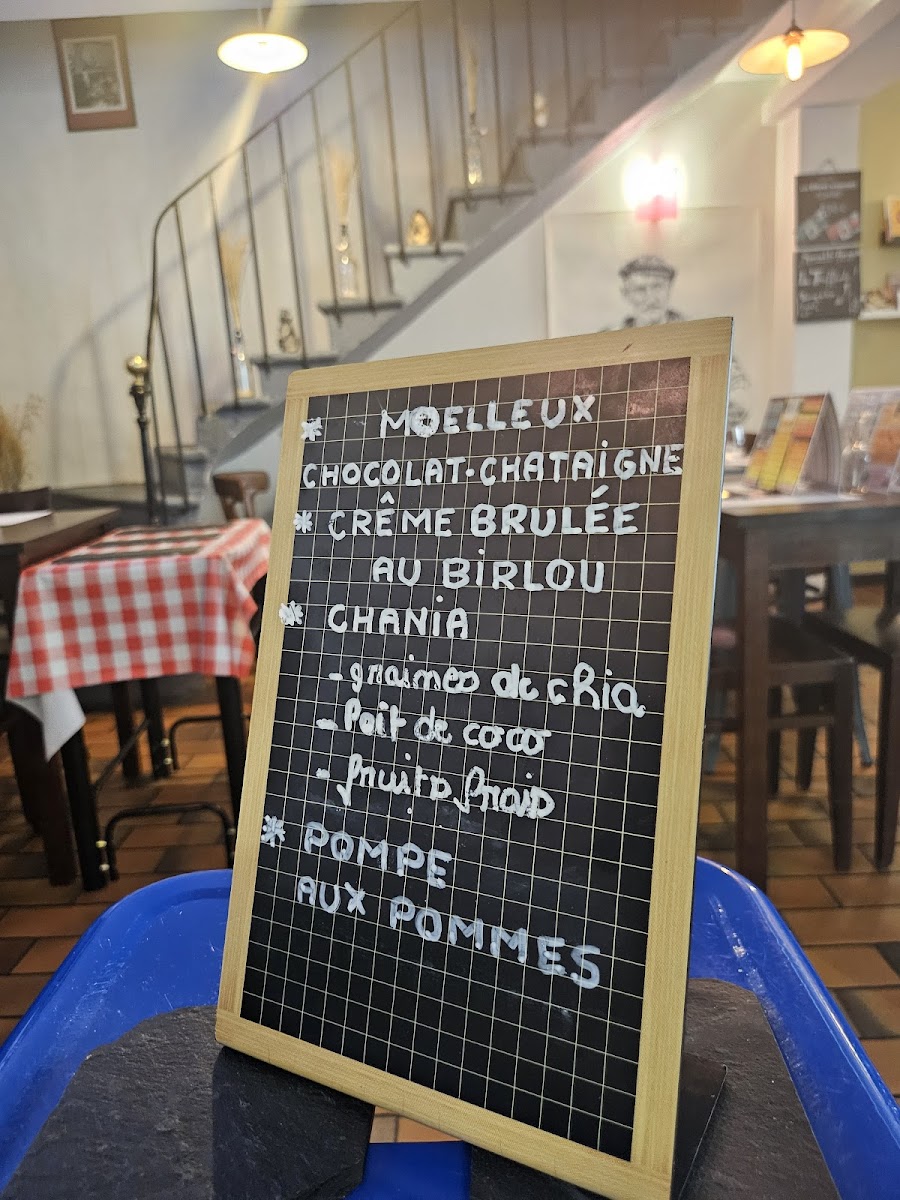 * MOELLEUX
CHOCOLAT-CHATAIGNE
* CRÊME BRULÉE
AU BIRLOU
* CHANIA
- graines de chia
- lait de coco
- fruits frais
* POMPE
AUX POMMES